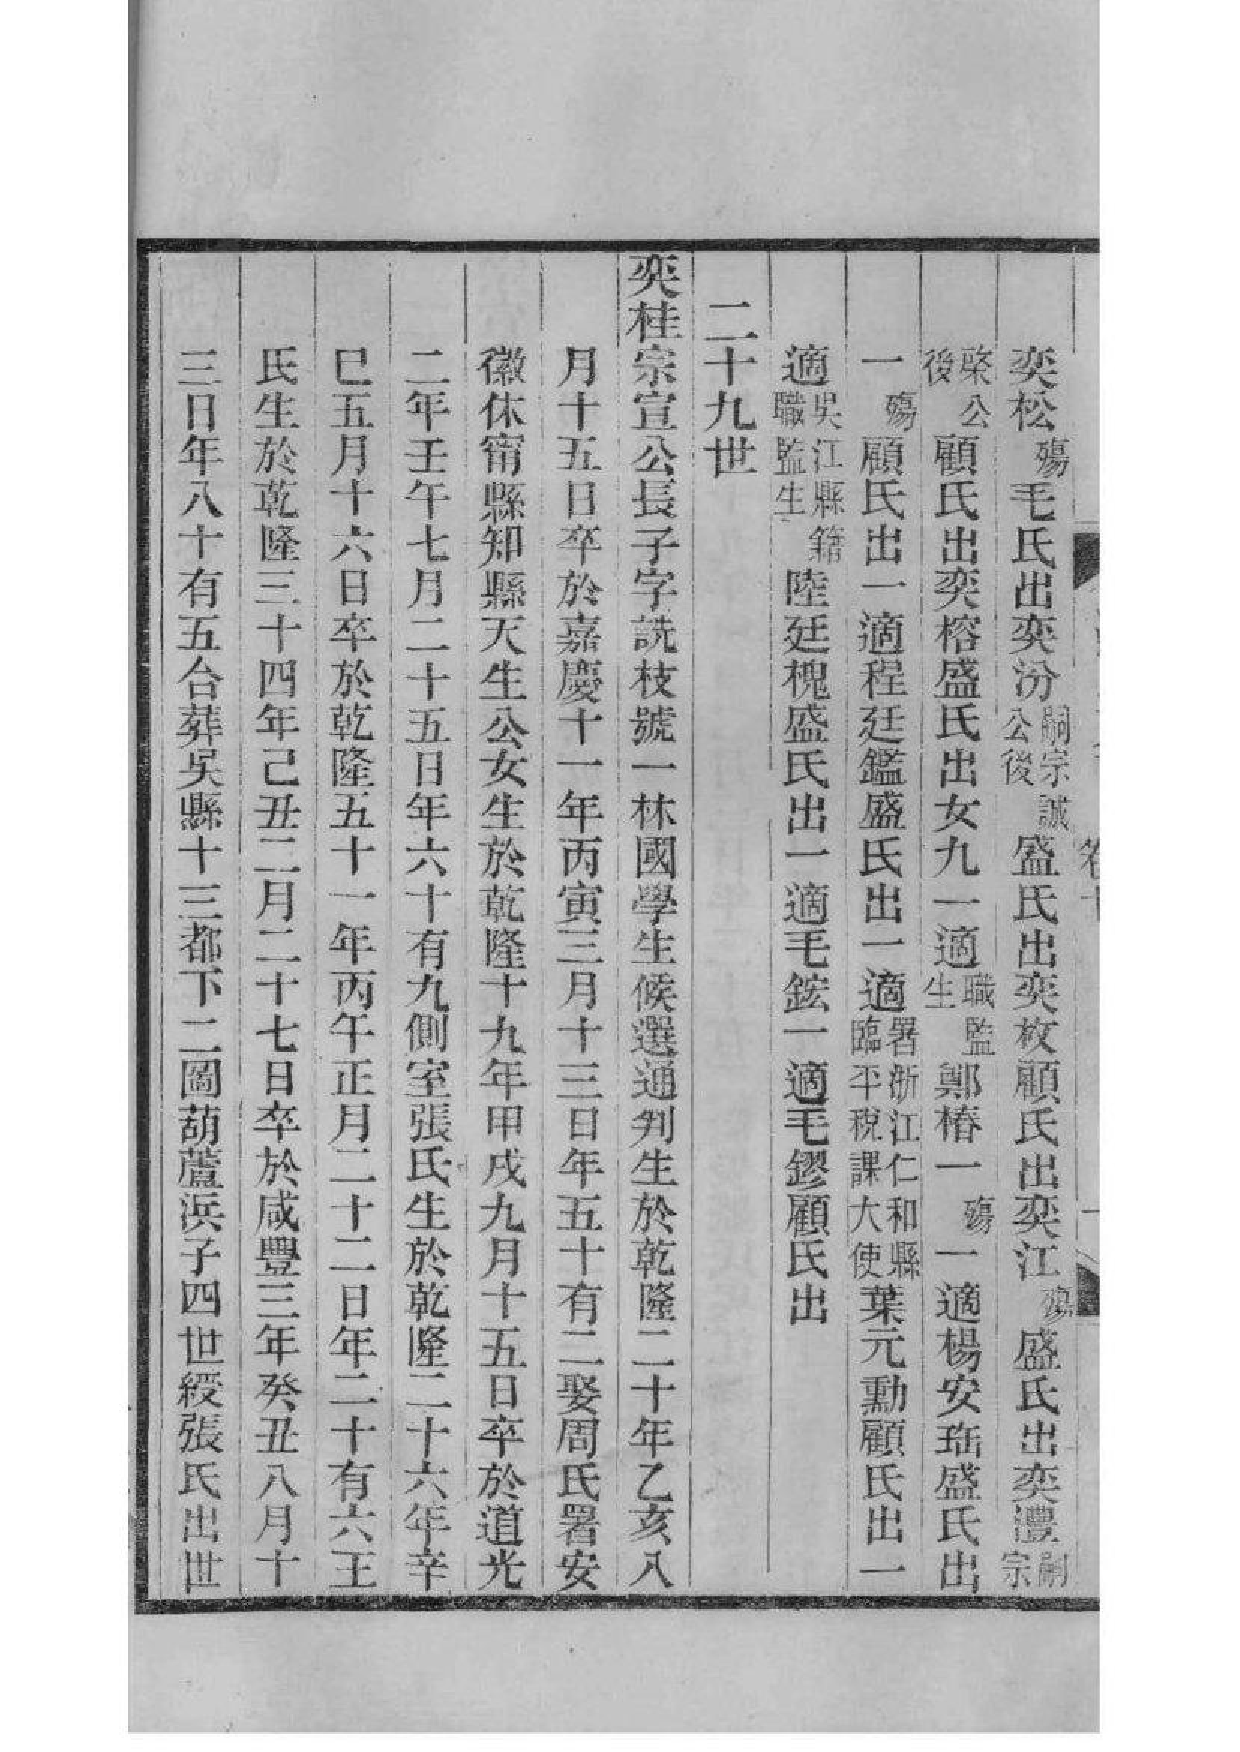 奕松殤毛氏出奕汾嗣宗誠公後盛氏出奕枚顧氏出奕江殤盛氏出奕灃嗣宗
棨公後顧氏出奕榕盛氏出女九一適職監生鄭椿一殤一適楊安珤盛氏出
一殤顧氏出一適程廷鑑盛氏出一適署浙江仁和縣臨平稅課大使葉元勳顧氏出一
適吳江縣籍職監生陸廷槐盛氏出一適毛鋐一適毛鏐顧氏出
二十九世
奕桂宗宣公長子字詵枝號一林國學生候選通判生於乾隆二十年乙亥八
月十五日卒於嘉慶十一年丙寅三月十三日年五十有二娶周氏署安
徽休甯縣知縣天生公女生於乾隆十九年甲戌九月十五日卒於道光
二年壬午七月二十五日年六十有九側室張氏生於乾隆二十六年辛
巳五月十六日卒於乾隆五十一年丙午正月二十二日年二十有六王
氏生於乾隆三十四年己丑二月二十七日卒於咸豐三年癸丑八月十
三日年八十有五合葬吳縣十三都下二圖葫蘆浜子四世綬張氏出世